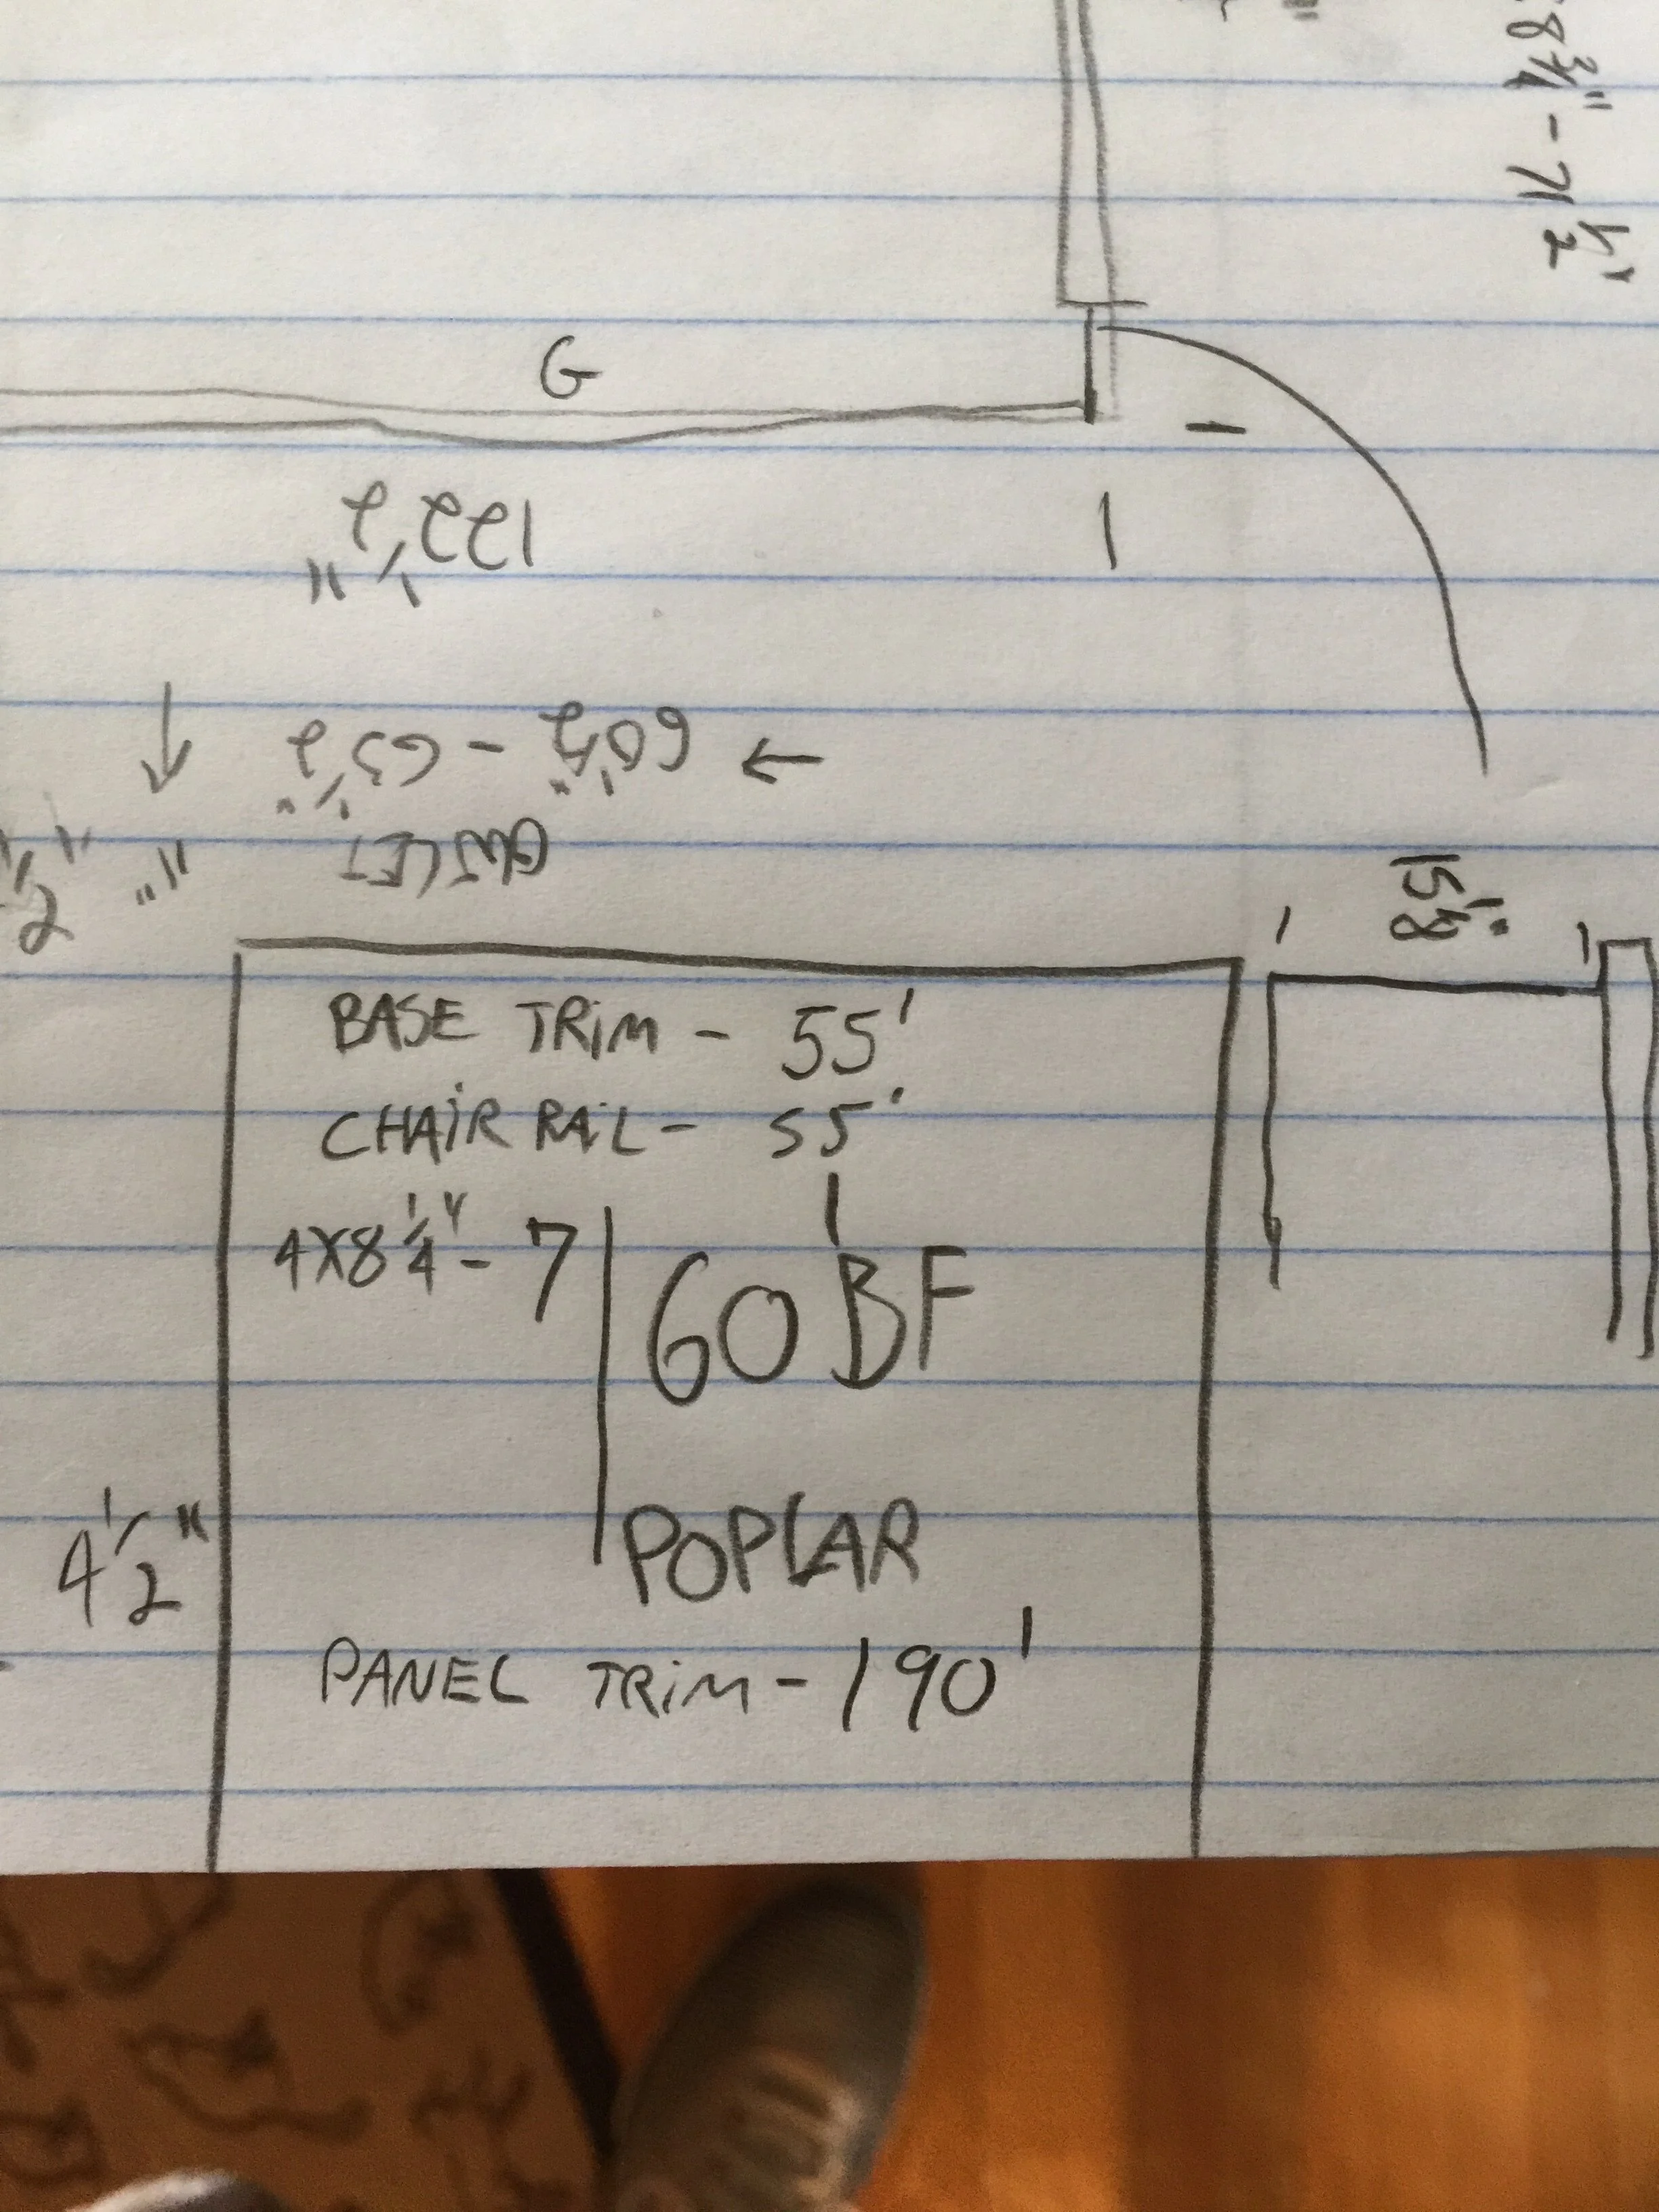 8 3/4" - 71 1/2"
G
122 1/2"
60 1/2" - 65 1/2"
OUTLET
15 1/8"
BASE TRiM - 55'
CHAiR RAiL - 55'
4X8 1/4" - 7
60 BF
POPLAR
4 1/2"
PANEL TRiM - 190'